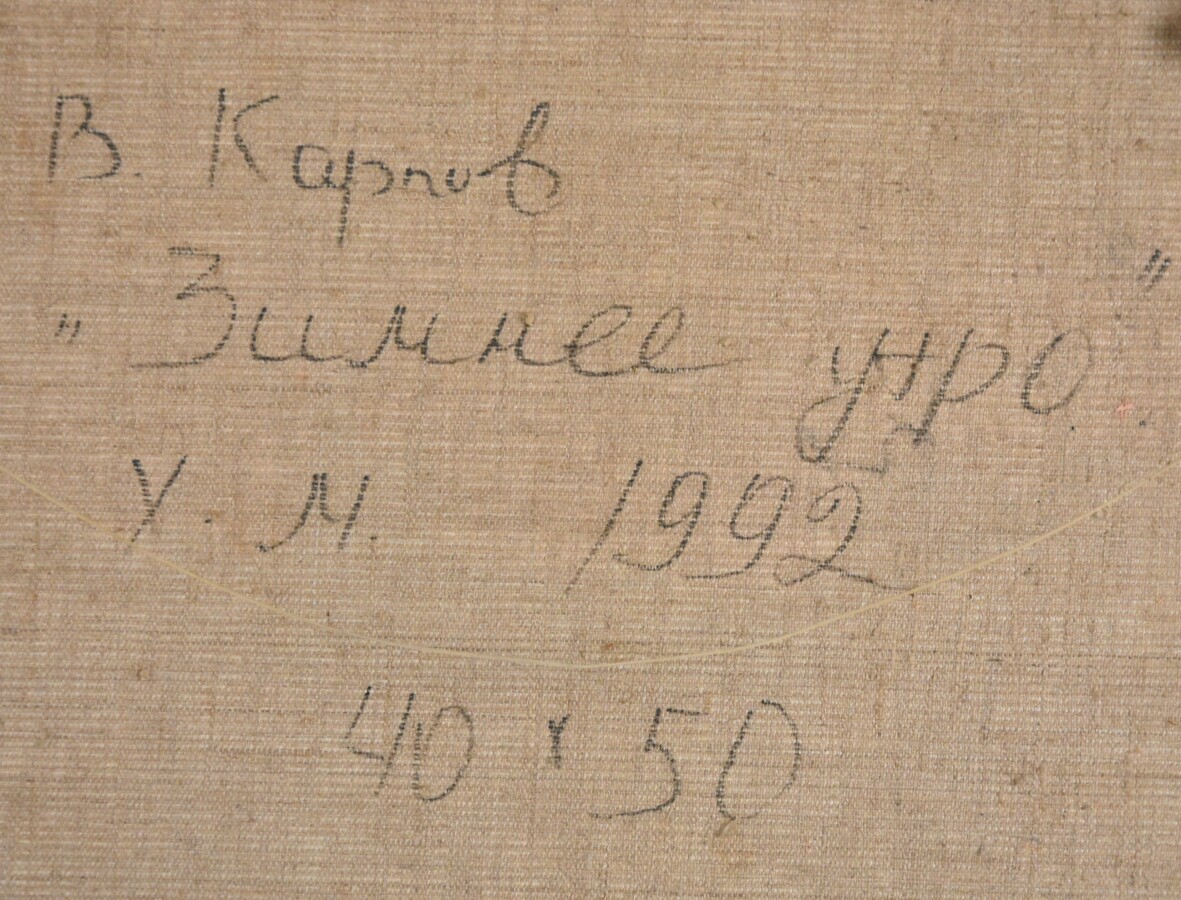 В. Карпов
"Зимнее утро"
Х. М. 1992
40 х 50